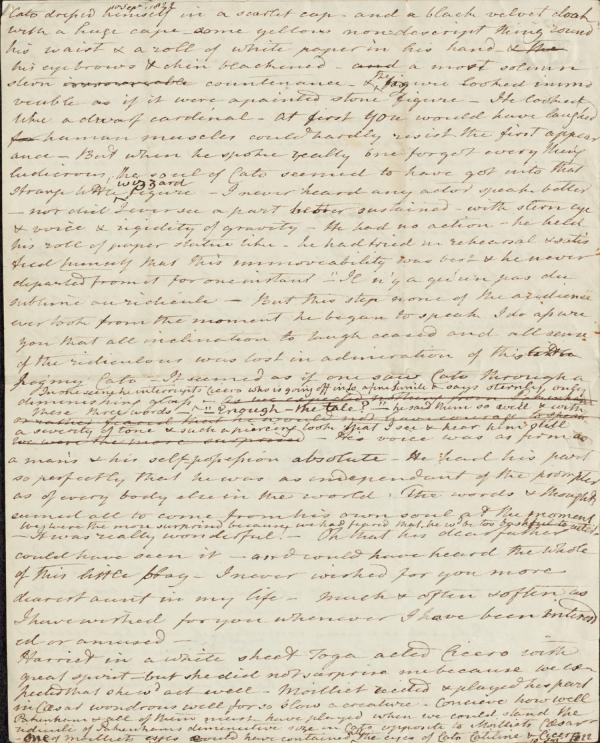 Cato dressed himself in a scarlet cap - and a black velvet cloak
with a huge cape - some yellow nondescript thing round
his waist & a roll of white paper in his hand & the
his eyebrows & chin blackened - and a most solemn
stern countenance - & the figure looked immo
veable as if it were a painted stone figure - He looked
like a dwarf cardinal - At first you would have laughed
human muscles could hardly resist the first appear
ance - But when he spoke really one forgot every thing
ludicrous, the soul of Cato seemed to have got into that
strange little wizzard figure - I never heard any actor speak better
- nor did I ever see a part better sustained - with stern eye
& voice & rigidity of gravity - He had no action - he held
his roll of paper statue like - he had tried in rehearsal & satis
fied himself that this immoveability was best & he never
departed from it for one instant - "Il n'y a qu'un pas du
sublime au ridicule - But this step none of the audience
ever took from the moment he began to speak I do assure
you that all inclination to laugh ceased and all sense
of the ridiculous was lost in admiration of this little
pigmy Cato - It seemed as if one saw Cato through a
In the scene he interrupts Cicero who is going off into a fine simile & says sternly only
diminishing glass
these three words - "Enough - the tale?" - he said them so well & with
a severity of tone & such a piercing look that I see & hear him still
His voice was as firm as
a man's & his self possession absolute - He had his part
so perfectly that he was as independent of the prompter
as of every body else in the world. The words & thoughts
seemed all to come from his own soul at the moment
We were the more surprised because we had feared that he wd be too bashful to
- It was really wonderful! - Oh that his dear father
could have seen it - and could have heard the whole
of this little play - I never wished for you more
dearest aunt in my life - much & often & often as
I have wished for you whenever I have been interest
ed or amused -
Harriet in a white sheet Toga acted Cicero with
great spirit - but she did not surprise me because we ex
pected that she wd act well - Molliet recited & played his part
in Cæsar wondrous well for so slow a creature - Conceive how well
Pakenham & all of them must have played when we could stand the
ridicule of Pakenhams diminutive size in Cato opposite to Molliets Cæsar or
One of Molliets eyes would have contained the eyes of Cato Catiline & Cicero